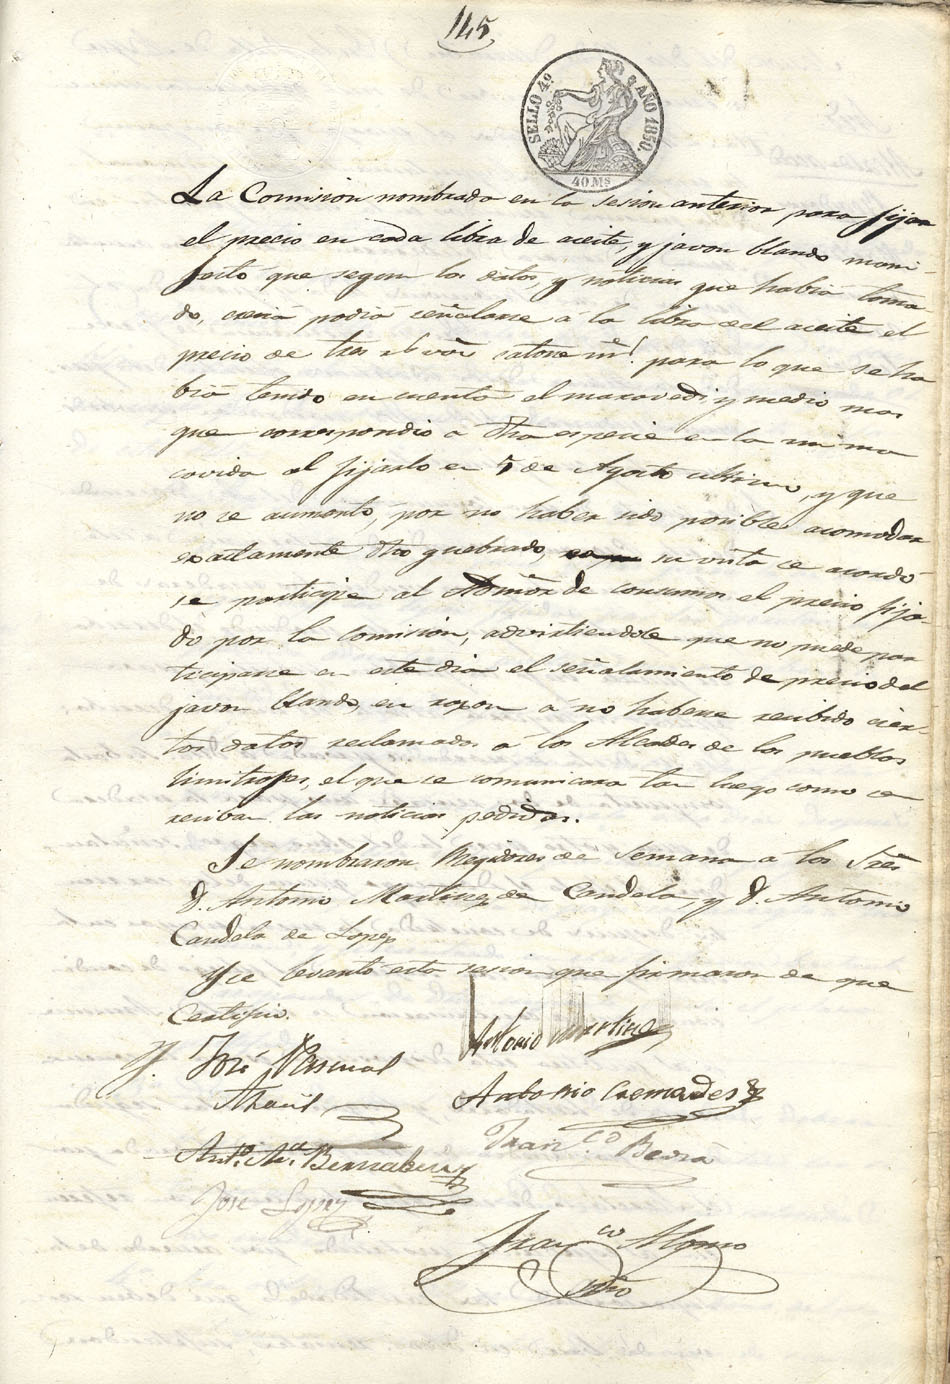 145
SELLO 4º AÑO 1850.
40 Ms
La Comision nombrada en la sesion anterior para fijar
el precio en cada libra de aceite, y javon blando mani-
festó que segun los datos, y noticias que habia toma-
do, creia podia señalarse á la libra del aceite el
precio de tres r.s von. para lo que se ha
bia tenido en cuenta el maravedi y medio mas
que correspondio a dha especie en la misma
cavida al fijarlo en 5 de Agosto ultimo, y que
no se aumentó, por no haber sido posible acomodar
exactamente dho quebrado, su vista se acordó
se participe al Admor de consumos el precio fija-
do por la comision, advirtiendole que no puede par
ticiparse en este dia el señalamiento de precio del
javon blando, en razon á no haberse recibido cier-
tos datos reclamados a los Alcaldes de los pueblos
limitrofes, el que se comunicara tan luego como se
reciban las noticias pedidas.
Se nombraron Regidores de semana a los Sres
D. Antonio Martinez de Candela, y D. Antonio
Candela de Lopez
Y se levantó esta sesion que firmaron de que
Certifico.
José Pascual
Antonio Martinez
Antonio Cremades
Anto. Ma. Bernabeu
Franco.
José Lopez
Franco Alfonso
Srio